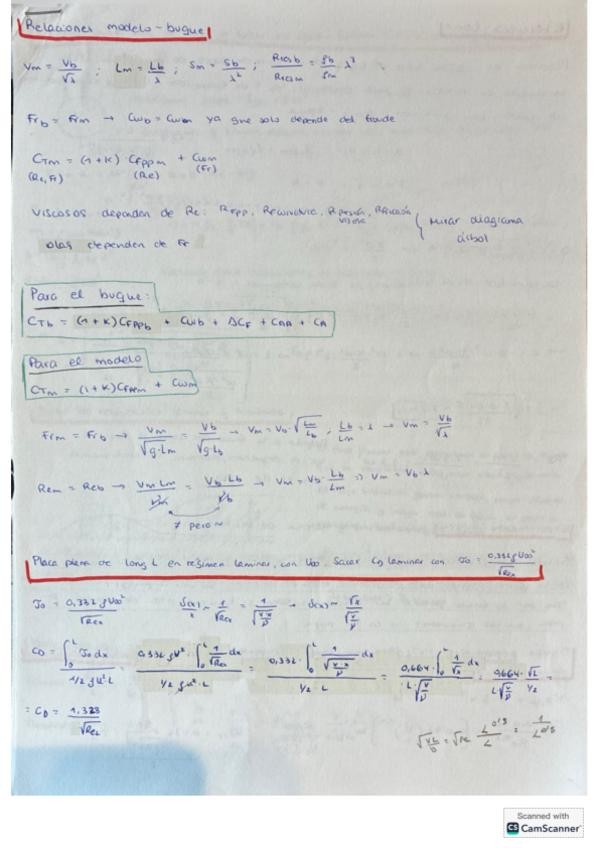 Relaciones modelo - buque
Vm = Vb/√λ ; Lm = Lb/λ ; Sm = Sb/λ² ; Rresb/Rresm = ρb/ρm λ³
Frb = Frm → Cwb = Cwm ya que solo depende del froude
CTm = (1+K) CFPPm + Cwm
(Re, Fr) (Re) (Fr)
Viscosos dependen de Re: RFPP, , Rpresión viscosa, Rfricción { Mirar diagrama árbol
olas dependen de Fr
Para el buque:
CTb = (1+K)CFPPb + Cwb + ΔCF + CAA + CA
Para el modelo
CTm = (1+K)CFPPm + Cwm
Frm = Frb → Vm/√g·Lm = Vb/√g·Lb → Vm = Vb·√Lm/Lb ; Lb/Lm = λ → Vm = Vb/√λ
Rem = Reb → Vm Lm/νm = Vb·Lb/νb → Vm = Vb·Lb/Lm => Vm = Vb·λ
≠ pero ~
Placa plana de long L en régimen laminar, con U∞. Sacar CD laminar con τ0 = 0,332ρU∞²/√Rex
τ0 = 0,332ρU∞²/√Rex δ(x)/x ~ 1/√Rex = 1/√(V·x/ν) → δ(x) ~ √x/√(V/ν)
CD = ∫₀ᴸ τ0 dx / 1/2 ρU²L = 0,332 ρU²·∫₀ᴸ 1/√Rex dx / 1/2 ρu²·L = 0,332·∫₀ᴸ 1/√(V·x/ν) dx / 1/2·L = 0,664·∫₀ᴸ 1/√x dx / L·√(V/ν) = 0,664·√L / L√(V/ν) 1/2 =
= CD = 1,328/√ReL
√(VL/ν) = √Re L^0,5/L = 1/L^0,5
Scanned with
CS CamScanner